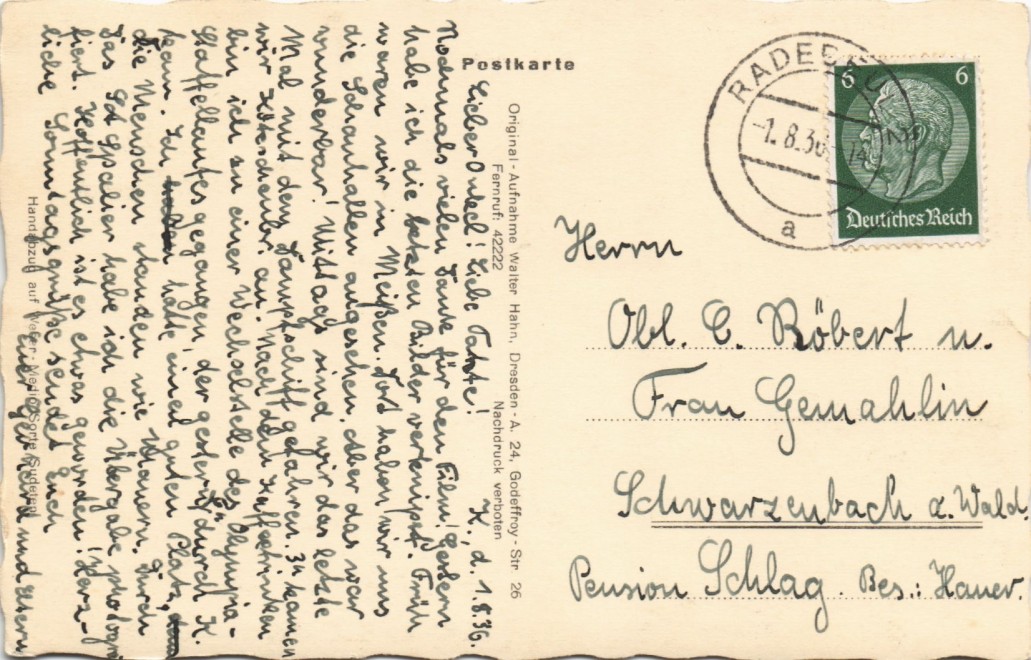 Postkarte
K., d. 1.8.36.
Lieber Onkel! Liebe Tante!
Nochmals vielen Dank für den Film! Gestern
habe ich die letzten Bilder verknipst. Früh
waren wir in Meißen. Dort haben wir uns
die Schauhallen angesehen. Aber das war
wunderbar! Mittags sind wir das letzte
Mal mit dem Dampfschiff gefahren. 3 kamen
wir an. Nach dem Kaffeetrinken
bin ich zu einer Wechselstelle des Olympia-
Staffellaufes gegangen, der gestern durch K.
kam. Ich hatte einen guten Platz,
die Menschen standen wie Mauern. Durch
das Spalier habe ich die Übergabe photogra-
fiert. Hoffentlich ist es etwas geworden! Herz-
liche Sonntagsgrüße sendet Euch
Euer Gerhard und Eltern
Original-Aufnahme Walter Hahn, Dresden-A. 24, Godeffroy-Str. 26
Fernruf: 42222 Nachdruck verboten
Handabzug auf Sorte Sudeten
RADEBEUL
-1.8.36-14
a
6 6
Deutsches Reich
Herrn
Obl. C. Röbert u.
Frau Gemahlin
Schwarzenbach a. Wald
Pension Schlag. Bes.: Hauer.